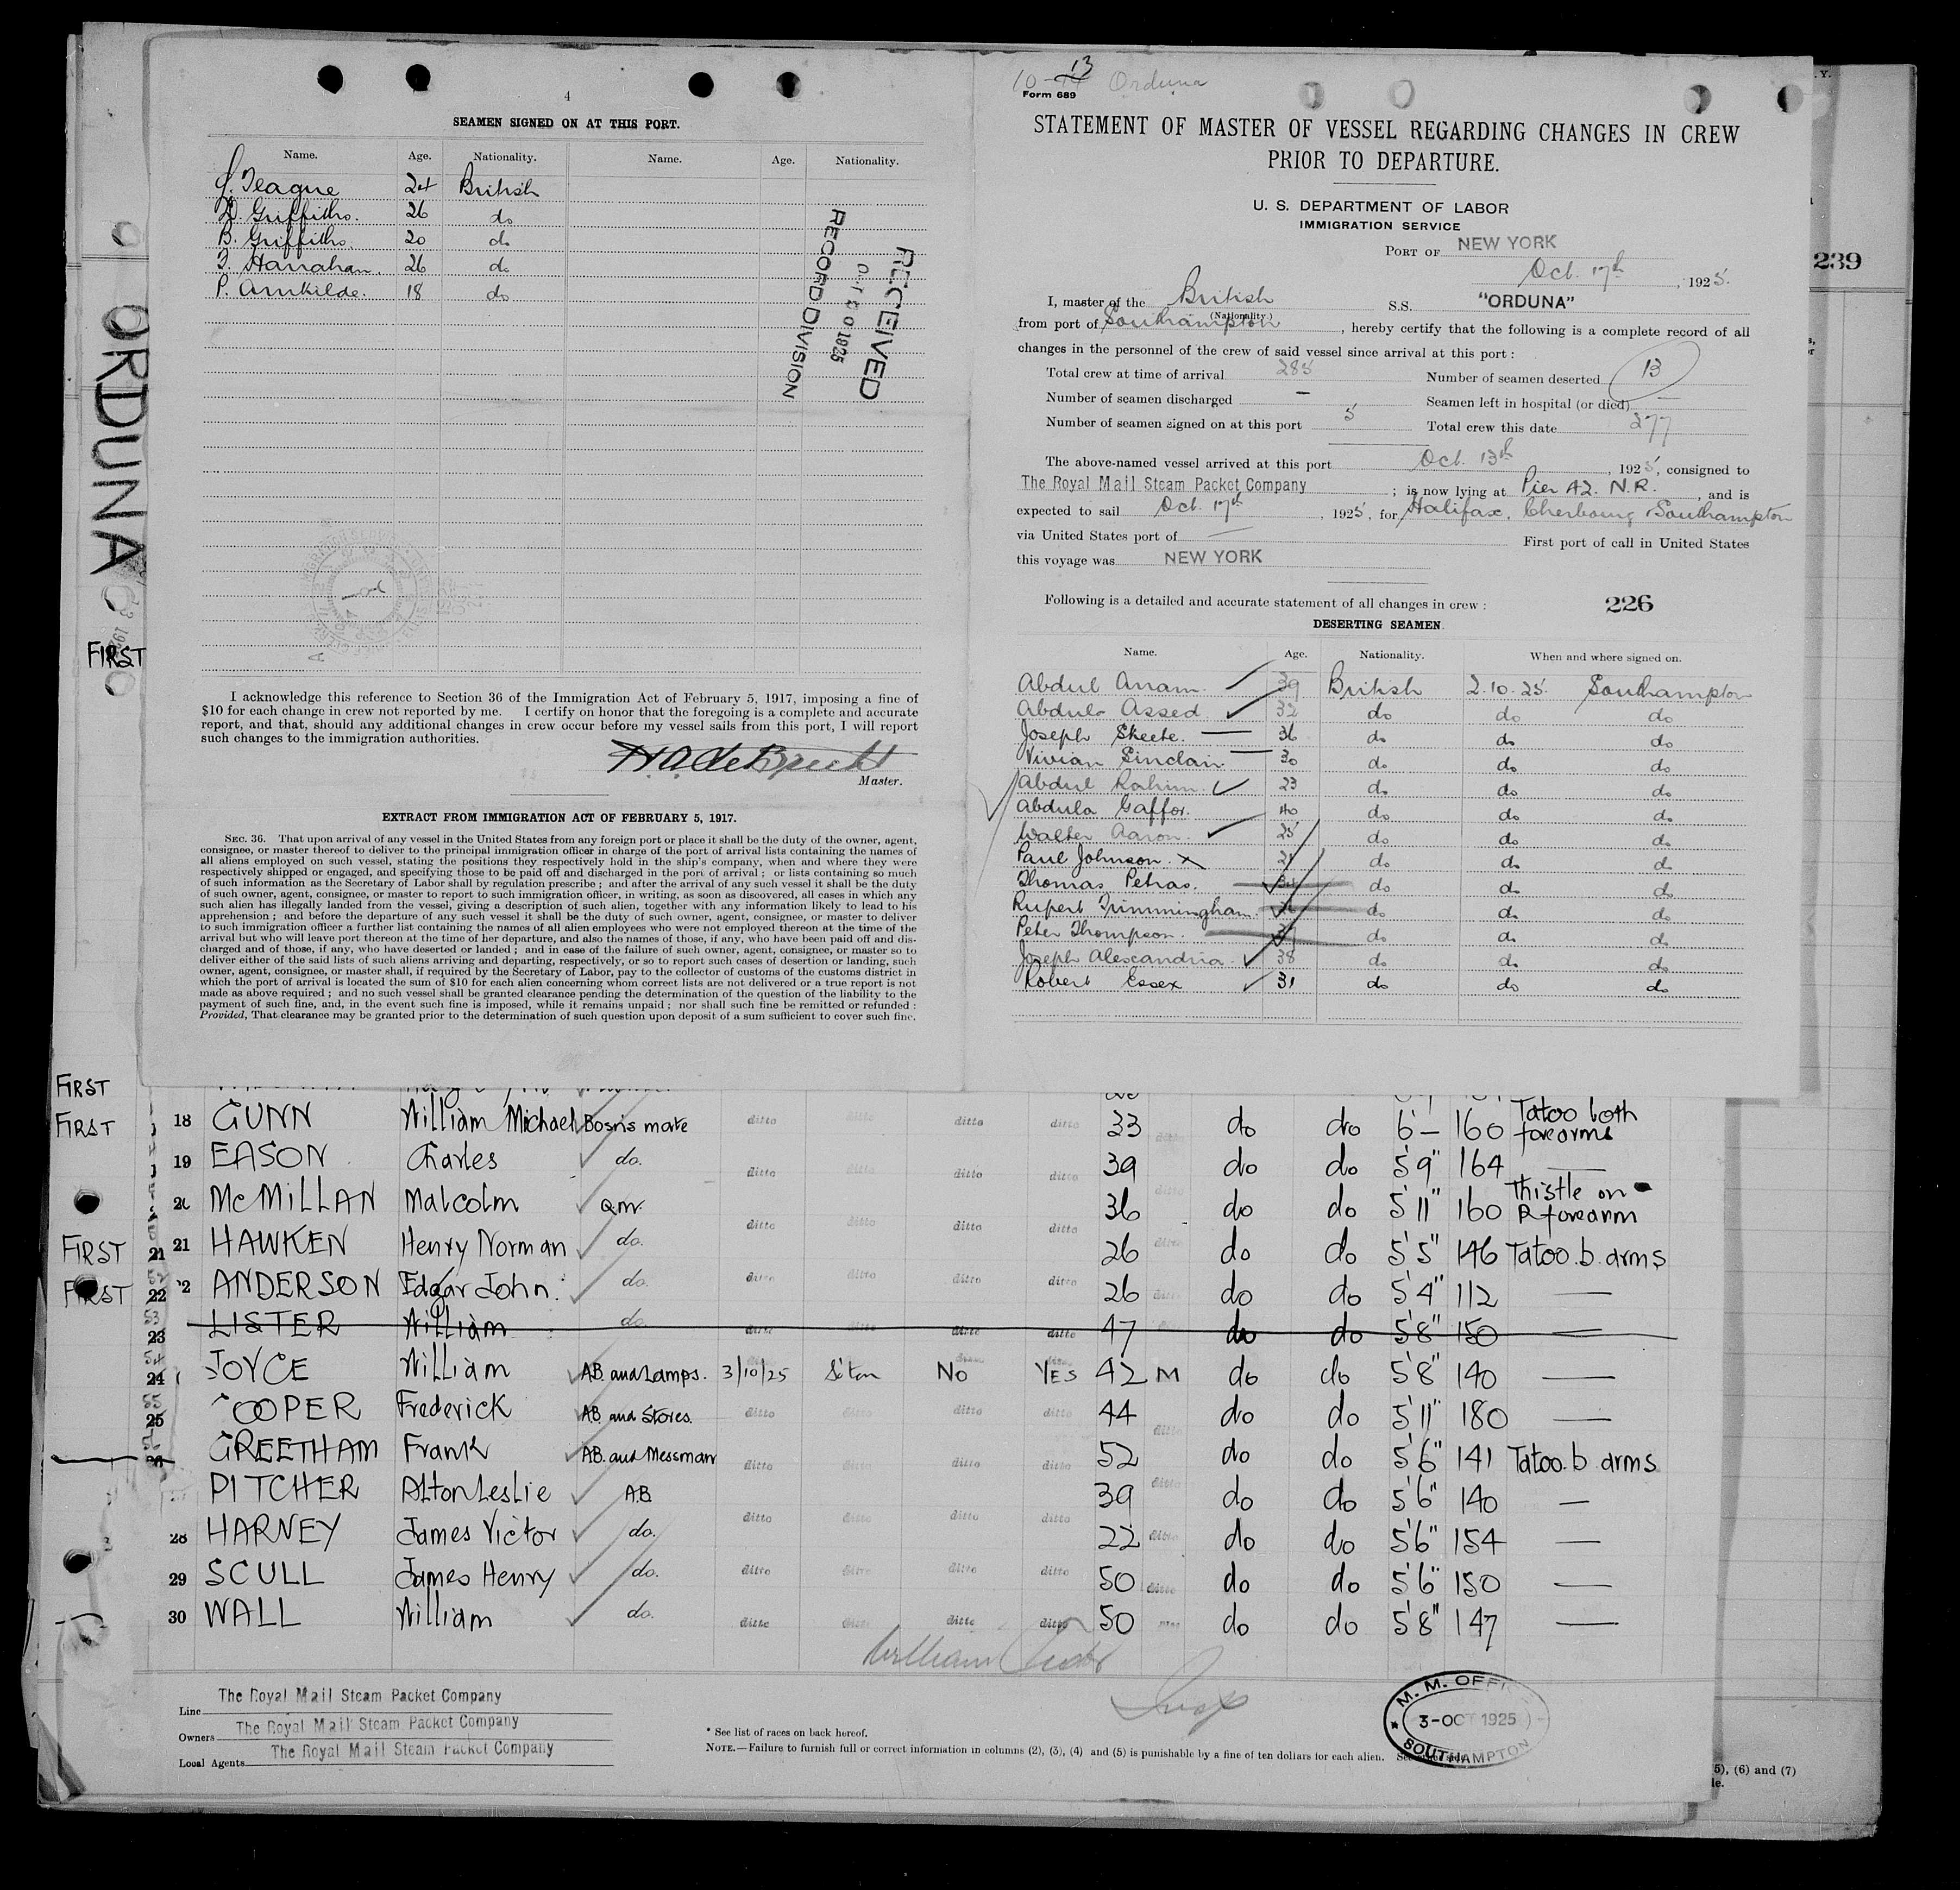 4
SEAMEN SIGNED ON AT THIS PORT.
Name. Age. Nationality. Name. Age. Nationality.
J. Teague 24 British
D. Griffiths. 26 do
B. Griffiths. 20 do
J. Hanrahan. 26 do
P. 18 do
RECEIVED
OCT 20 1925
RECORD DIVISION
I acknowledge this reference to Section 36 of the Immigration Act of February 5, 1917, imposing a fine of
$10 for each change in crew not reported by me. I certify on honor that the foregoing is a complete and accurate
report, and that, should any additional changes in crew occur before my vessel sails from this port, I will report
such changes to the immigration authorities.
Master.
EXTRACT FROM IMMIGRATION ACT OF FEBRUARY 5, 1917.
SEC. 36. That upon arrival of any vessel in the United States from any foreign port or place it shall be the duty of the owner, agent,
consignee, or master thereof to deliver to the principal immigration officer in charge of the port of arrival lists containing the names of
all aliens employed on such vessel, stating the positions they respectively hold in the ship's company, when and where they were
respectively shipped or engaged, and specifying those to be paid off and discharged in the port of arrival ; or lists containing so much
of such information as the Secretary of Labor shall by regulation prescribe ; and after the arrival of any such vessel it shall be the duty
of such owner, agent, consignee, or master to report to such immigration officer, in writing, as soon as discovered, all cases in which any
such alien has illegally landed from the vessel, giving a description of such alien, together with any information likely to lead to his
apprehension ; and before the departure of any such vessel it shall be the duty of such owner, agent, consignee, or master to deliver
to such immigration officer a further list containing the names of all alien employees who were not employed thereon at the time of the
arrival but who will leave port thereon at the time of her departure, and also the names of those, if any, who have been paid off and dis-
charged and of those, if any, who have deserted or landed ; and in case of the failure of such owner, agent, consignee, or master so to
deliver either of the said lists of such aliens arriving and departing, respectively, or so to report such cases of desertion or landing, such
owner, agent, consignee, or master shall, if required by the Secretary of Labor, pay to the collector of customs of the customs district in
which the port of arrival is located the sum of $10 for each alien concerning whom correct lists are not delivered or a true report is not
made as above required ; and no such vessel shall be granted clearance pending the determination of the question of the liability to the
payment of such fine, and, in the event such fine is imposed, while it remains unpaid ; nor shall such fine be remitted or refunded :
Provided, That clearance may be granted prior to the determination of such question upon deposit of a sum sufficient to cover such fine.
13
Orduna
Form 689
STATEMENT OF MASTER OF VESSEL REGARDING CHANGES IN CREW
PRIOR TO DEPARTURE.
U. S. DEPARTMENT OF LABOR
IMMIGRATION SERVICE
PORT OF NEW YORK
Oct. 17th, 1925.
I, master of the British S.S. "ORDUNA"
(Nationality.)
from port of Southampton, hereby certify that the following is a complete record of all
changes in the personnel of the crew of said vessel since arrival at this port :
Total crew at time of arrival 285 Number of seamen deserted 13
Number of seamen discharged – Seamen left in hospital (or died) –
Number of seamen signed on at this port 5 Total crew this date 277
The above-named vessel arrived at this port Oct. 13th, 1925, consigned to
The Royal Mail Steam Packet Company ; is now lying at Pier 42. N.R., and is
expected to sail Oct. 17th, 1925, for Halifax, Cherbourg, Southampton
via United States port of — First port of call in United States
this voyage was NEW YORK
Following is a detailed and accurate statement of all changes in crew : 226
DESERTING SEAMEN.
Name. Age. Nationality. When and where signed on.
Abdul Anam. 39 British 2.10.25. Southampton
Abdul Assed 32 do do do
Joseph Skeete. 36 do do do
Vivian Sinclair. 30 do do do
Abdul Rahim 23 do do do
Abdula Gaffor. 40 do do do
Walter Aaron. 25 do do do
Paul Johnson. do do do
Thomas Petras. do do do
Rupert Trimmingham. do do do
Peter Thompson. do do do
Joseph Alexandria. 38 do do do
Robert Essex 31 do do do
239
ORDUNA
FIRST
FIRST
FIRST 18 GUNN William Michael Bosn's mate ditto ditto ditto ditto 33 do do 6 – 160 Tatoo both forearms
19 EASON Charles do. ditto ditto ditto ditto 39 do do 5'9" 164 —
20 McMILLAN Malcolm Q.M. ditto ditto ditto ditto 36 do do 5'11" 160 Thistle on R forearm
FIRST 21 21 HAWKEN Henry Norman do. ditto ditto ditto ditto 26 do do 5'5" 146 Tatoo. b. arms
FIRST 22 22 ANDERSON Edgar John. do. ditto ditto ditto ditto 26 do do 5'4" 112 —
23 LISTER William do. ditto ditto ditto ditto 47 do do 5'8" 150 —
24 JOYCE William AB. and Lamps. 3/10/25 S'ton No YES 42 M do do 5'8" 140 —
25 COOPER Frederick AB. and Stores. ditto ditto ditto ditto 44 do do 5'11" 180 —
26 GREETHAM Frank AB. and Messman ditto ditto ditto ditto 52 do do 5'6" 141 Tatoo. b. arms
PITCHER Alton Leslie A.B. 39 ditto do do 5'6" 140 —
28 HARNEY James Victor do. ditto ditto ditto ditto 22 ditto do do 5'6" 154 —
29 SCULL James Henry do. ditto ditto ditto ditto 50 ditto do do 5'6" 150 —
30 WALL William do. ditto ditto ditto ditto 50 do do 5'8" 147 —
Line The Royal Mail Steam Packet Company
Owners The Royal Mail Steam Packet Company
Local Agents The Royal Mail Steam Packet Company
* See list of races on back hereof.
NOTE.—Failure to furnish full or correct information in columns (2), (3), (4) and (5) is punishable by a fine of ten dollars for each alien.
M. M. OFFICE
3-OCT 1925
SOUTHAMPTON
5), (6) and (7)